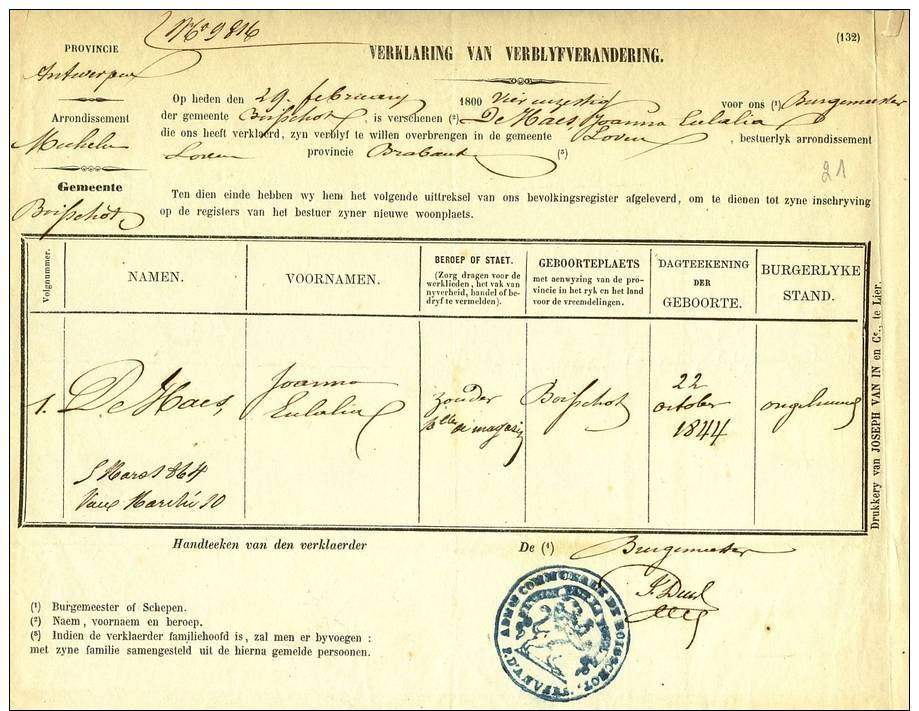 No 9816
(132)
PROVINCIE
Antwerpen
Arrondissement
Mechelen
Gemeente
Boisschot
VERKLARING VAN VERBLYFVERANDERING.
Op heden den 29. februarij 1800 vier en zestig voor ons (¹) Burgemeester
der gemeente Boisschot, is verschenen (²) De Maes, Joanna Eulalia
die ons heeft verklaerd, zyn verblyf te willen overbrengen in de gemeente Loven, bestuerlyk arrondissement
Loven provincie Brabant (³)
21
Ten dien einde hebben wy hem het volgende uittreksel van ons bevolkingsregister afgeleverd, om te dienen tot zyne inschryving
op de registers van het bestuer zyner nieuwe woonplaets.
Volgnummer.
NAMEN.
VOORNAMEN.
BEROEP OF STAET.
(Zorg dragen voor de
werklieden, het vak van
nyverheid, handel of be-
dryf te vermelden).
GEBOORTEPLAETS
met aenwyzing van de pro-
vincie in het ryk en het land
voor de vreemdelingen.
DAGTEEKENING
DER
GEBOORTE.
BURGERLYKE
STAND.
1. De Maes,
Joanna
Eulalia
zonder
de magasin
Boisschot
22
october
1844
ongehuwd
5 Mars 1864
Vieux Marché 10
Drukkery van JOSEPH VAN IN en Cᵉ., te Lier.
Handteeken van den verklaerder
De (¹) Burgemeester
(¹) Burgemeester of Schepen.
(²) Naem, voornaem en beroep.
(³) Indien de verklaerder familiehoofd is, zal men er byvoegen :
met zyne familie samengesteld uit de hierna gemelde persoonen.
ADMON COMMUNALE DE BOISSCHOT.
P. D'ANVERS